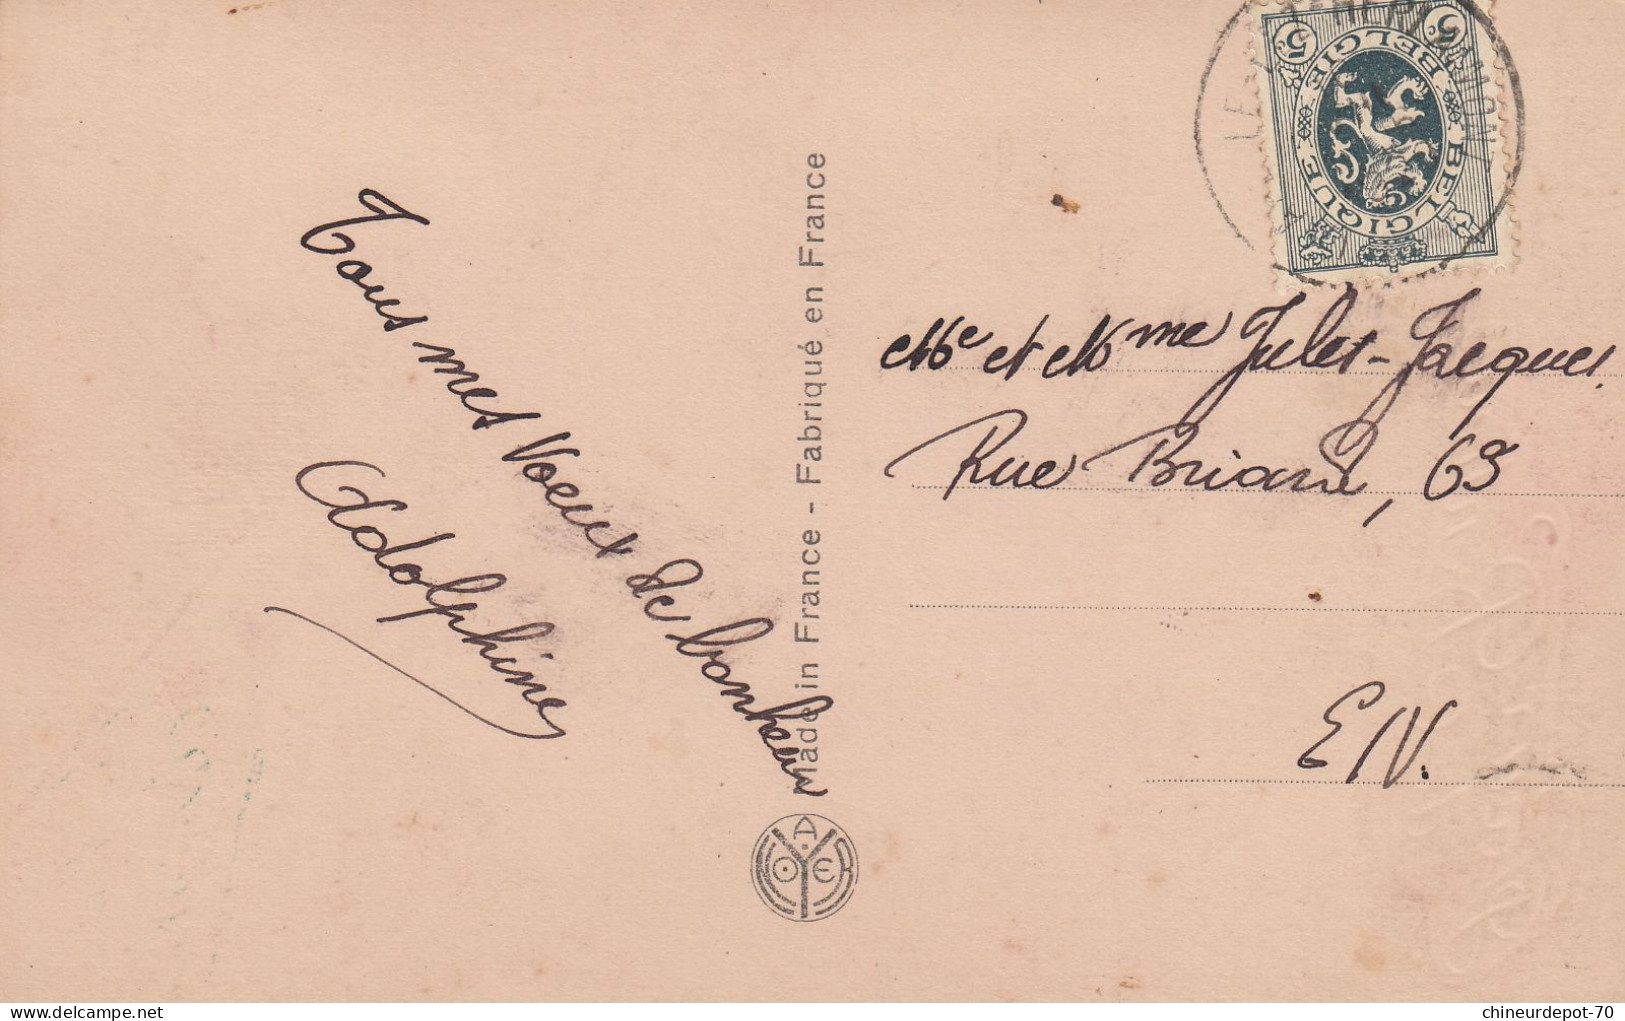 5 BELGIE BELGIQUE 5
Tous mes Voeux de bonheur
Adolphine
Made in France - Fabriqué en France
Me et Mme Jules-Jacques
Rue Briard, 63
E/V.
delcampe.net
chineurdepot-70